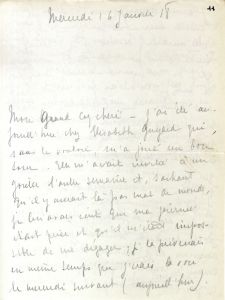 44
Mercredi 16 Janvier 18
Mon Grand cheri – j'ai été au-
jourd'hui chez Elisabeth qui,
sans le vouloir m'a joué un bon
tour. Elle m'avait invitée à un
goûter l'autre semaine et, sachant
qu'il y aurait là pas mal de monde,
je lui avais écrit que ma journée
était prise et qu'il m'était impos-
sible de me dégager, je la prévenais
en même temps que j'irais la voir
le mercredi suivant (aujourd'hui).